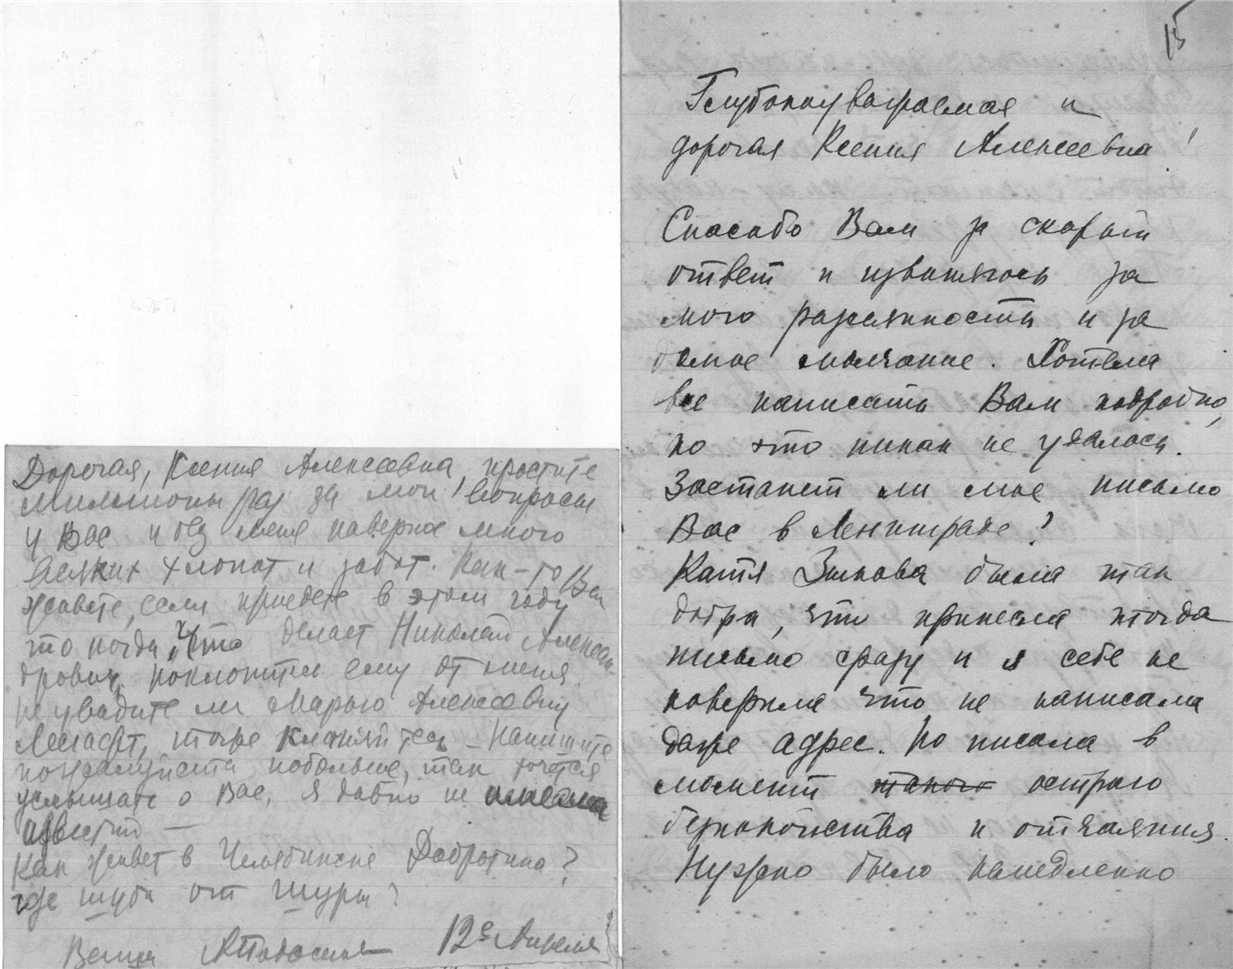 Дорогая, Ксения Алексеевна, простите
миллионы раз за мои вопросы
У Вас и без меня наверное много
всяких хлопот и забот. Как-то Вы
живете, если приедете в этом году
то когда, Что делает Николай Алексан
дрович, поклонитесь ему от меня
Не увидите ли Марью Алексеевну
тоже кланяйтесь – Напишите
пожалуйста побольше, так хочется
услышать о Вас, я давно не имела
известий –
Как живет в Челябинске Добротина?
где шуба от Шуры?
Ваша 12е Апреля
15
Глубокоуважаемая и
дорогая Ксения Алексеевна!
Спасибо Вам за скорый
ответ и извиняюсь за
мою рассеянность и за
долгое молчание. Хотела
все написать Вам подробно,
но это никак не удалось.
Застанет ли мое письмо
Вас в Ленинграде?
Катя Зыкова была так
добра, что принесла тогда
письмо сразу и я себе не
поверила что не написала
даже адрес. Но писала в
момент такого острого
беспокойства и отчаяния.
Нужно было немедленно